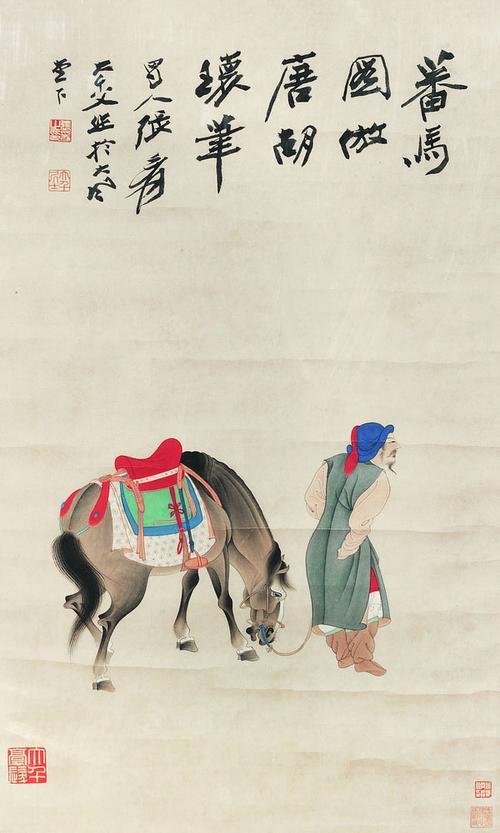 蕃馬
圖倣
唐胡
瓌筆
蜀人張爰
大千父作於大風
堂下
大千
豪髮